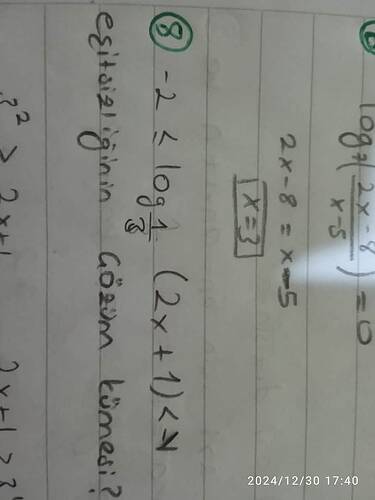 log₇((2x-8)/(x-5)) = 0
2x-8 = x-5
x=3
8 -2 ≤ log_{1/3} (2x+1) < -1
eşitsizliğinin çözüm kümesi?
3² ≥ 2x+1 2x+1 > 3¹
2024/12/30 17:40